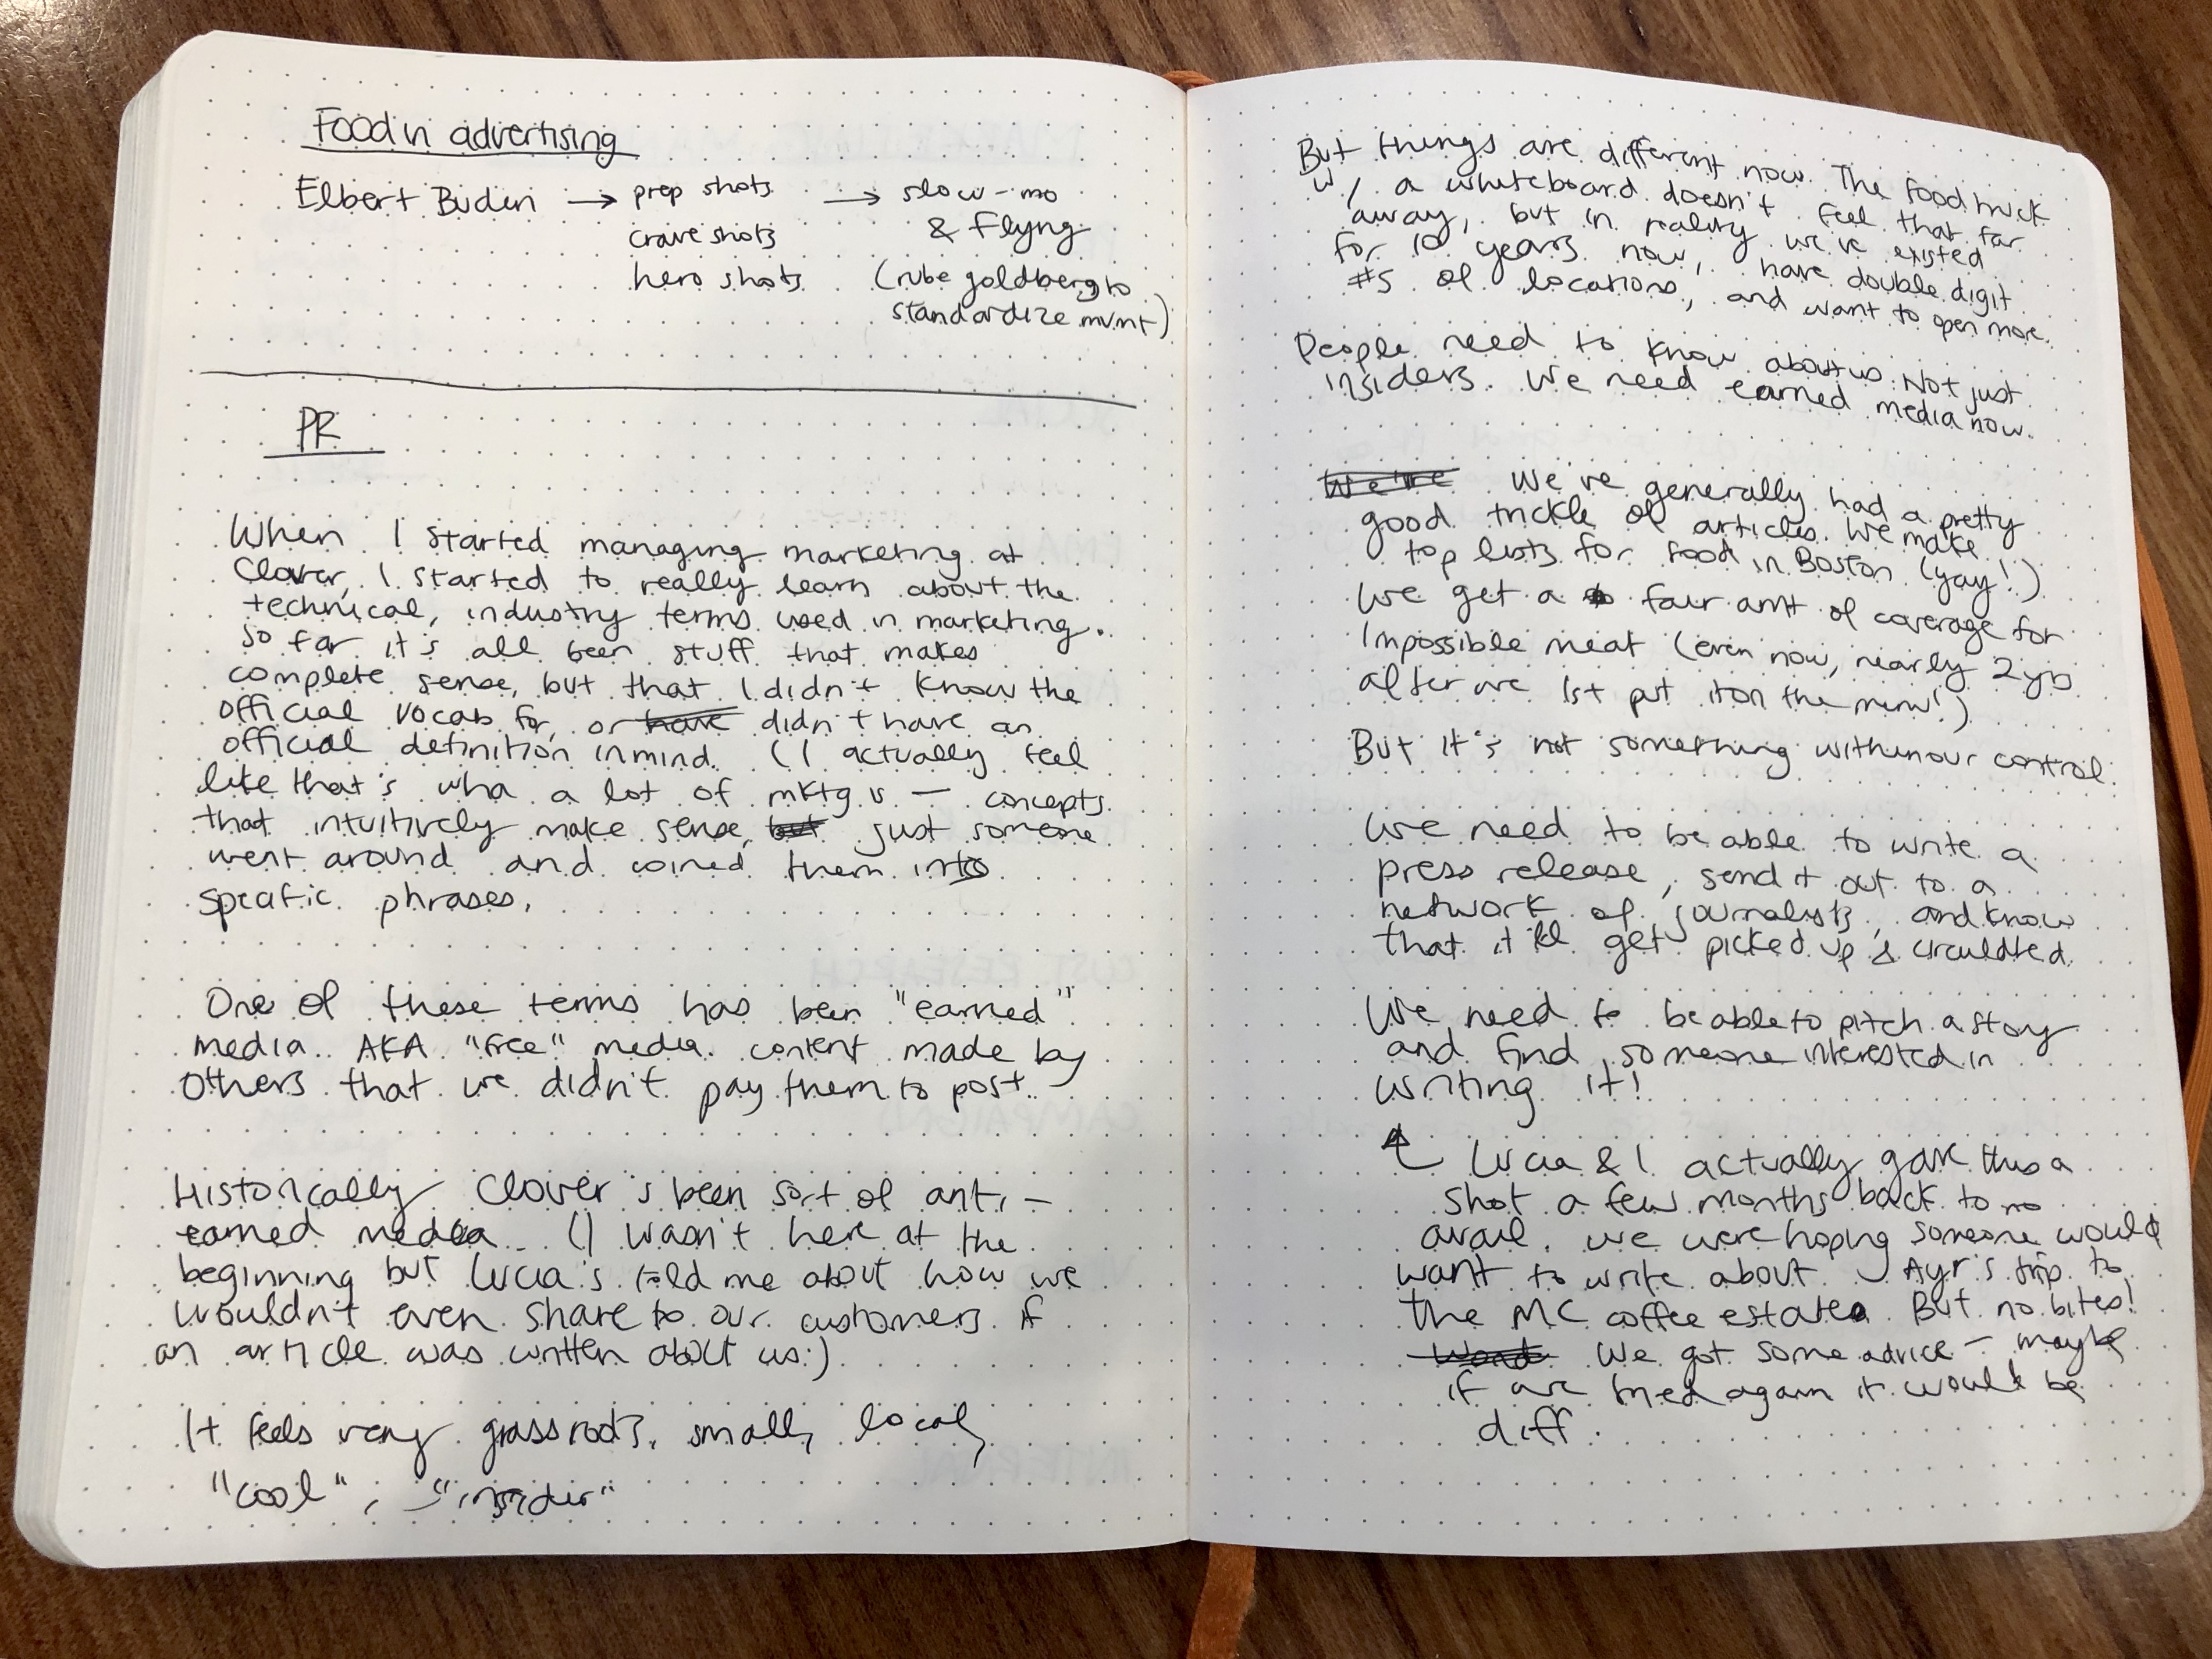 Food in advertising
Elbert Budin → prep shots → slow-mo
crave shots & flyng
hero shots (rube goldberg to
standardize mvmnt)
PR
When I started managing marketing at
Clover, I started to really learn about the
technical, industry terms used in marketing.
So far it's all been stuff that makes
complete sense, but that I didn't know the
official vocab for, or have didn't have an
official definition in mind. (I actually feel
like that's wha a lot of mktg is — concepts
that intuitively make sense, but just someone
went around and coined them into
specific phrases.
One of these terms has been "earned"
media. AKA "free" media. content made by
others that we didn't pay them to post.
Historically Clover's been sort of anti-
earned media. (I wasn't here at the
beginning but Lucia's told me about how we
wouldn't even share to our customers if
an article was written about us.)
It feels very grassroots, small, local,
"cool", "insider"
But things are different now. The food truck
w/ a whiteboard doesn't feel that far
away, but in reality we've existed
for 10 years now, have double digit
#s of locations, and want to open more.
People need to know about us. Not just
insiders. We need earned media now.
We're We've generally had a pretty
good trickle of articles. We make
top lists for food in Boston (yay!)
We get a fair amt of coverage for
Impossible meat (even now, nearly 2 yrs
after we 1st put it on the menu!)
But it's not something within our control.
We need to be able to write a
press release, send it out to a
network of journalists, and know
that it'll get picked up & circulated.
We need to be able to pitch a story
and find someone interested in
writing it!
↑ Lucia & I actually gave this a
shot a few months back to no
avail. We were hoping someone would
want to write about Ayr's trip to
the MC coffee estate. But no bites!
We got some advice – maybe
if we tried again it would be
diff.